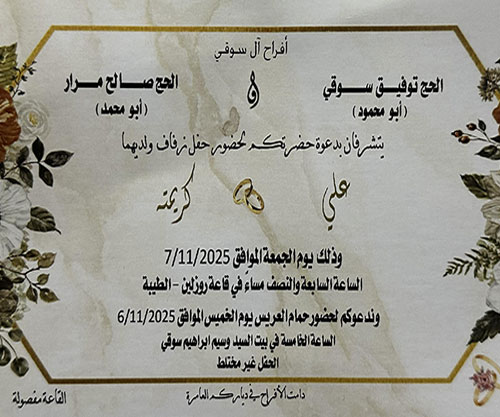 أفراح آل سوقي
الحج توفيق سوقي و الحج صالح مرار
(أبو محمود) (أبو محمد)
يتشرفان بدعوة حضرتكم لحضور حفل زفاف ولديهما
علي كريمته
وذلك يوم الجمعة الموافق 7/11/2025
الساعة السابعة والنصف مساءً في قاعة روزلين - الطيبة
وندعوكم لحضور حمام العريس يوم الخميس الموافق 6/11/2025
الساعة الخامسة في بيت السيد وسيم ابراهيم سوقي
الحفل غير مختلط
دامت الأفراح في دياركم العامرة
القاعة مفصولة